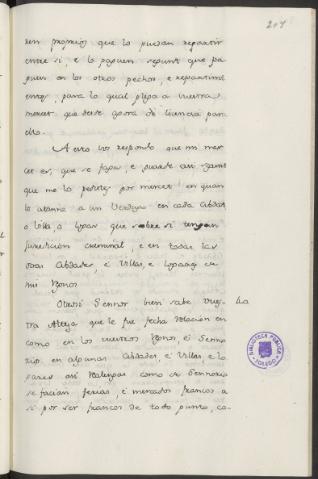 207
ren propios que lo puedan repartir
entre si, e lo paguen segunt que pa
guen en los otros pechos, e repartimi
entos, para lo qual plega a vuestra
merced, que desde agora dé licencia para
ello.
A esto vos respondo que mi mer
ced es, que se faga, e guarde asi segunt
que me lo pedistes por merced en quan
to atanne a un Verdugo en cada Cibdat
o Villa, o Lugar que sobre si tengan
juredicion criminal, e en todas las
otras Cibdades, e Villas, e Logares de
mis Regnos.
Otrosi Sennor bien sabe vues
tra Alteza que le fue fecha relacion en
como en los vuestros Regnos, e Senno
rios en algunas Cibdades, e Villas, e lo
gares asi Realengos como de Sennorio
se facian ferias, e mercados francos a
si por ser francos de todo punto, co-
BIBLIOTECA PÚBLICA
TOLEDO